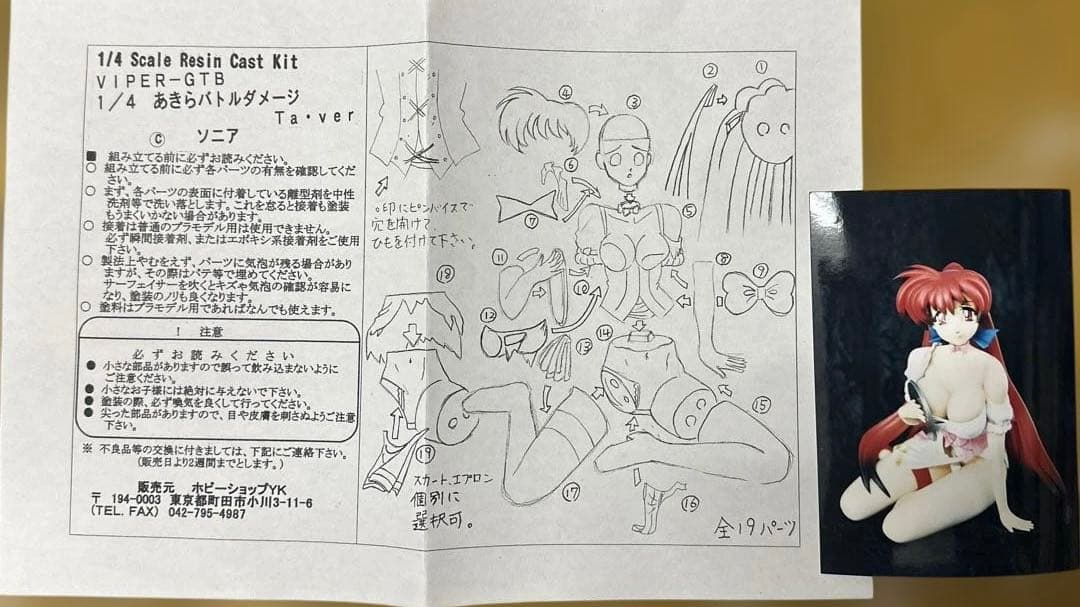 1/4 Scale Resin Cast Kit
VIPER-GTB
1/4 あきらバトルダメージ
Ta・ver
© ソニア
■ 組み立てる前に必ずお読みください。
○ 組み立てる前に必ず各パーツの有無を確認してくだ
さい。
○ まず、各パーツの表面に付着している離型剤を中性
洗剤等で洗い落とします。これを怠ると接着も塗装
もうまくいかない場合があります。
○ 接着は普通のプラモデル用は使用できません。
必ず瞬間接着剤、またはエポキシ系接着剤をご使用
下さい。
○ 製法上やむをえず、パーツに気泡が残る場合があり
ますが、その際はパテ等で埋めてください。
サーフェイサーを吹くとキズゃ気泡の確認が容易に
なり、塗装のノリも良くなります。
○ 塗料はプラモデル用であればなんでも使えます。
! 注意
必ずお読みください
● 小さな部品がありますので誤って飲み込まないように
ご注意ください。
● 小さなお子様には絶対に与えないで下さい。
● 塗装の際、必ず喚気を良くして行ってください。
● 尖った部品がありますので、目や皮膚を刺さぬようご注意
下さい。
※ 不良品等の交換に付きましては、下記にご連絡下さい。
(販売日より2週間までとします。)
販売元 ホビーショップYK
〒 194-0003 東京都町田市小川3-11-6
(TEL. FAX) 042-795-4987
○印にピンバイスで
穴を開けて
ひもを付けて下さい。
①
②
③
④
⑤
⑥
⑦
⑧
⑨
⑩
⑪
⑫
⑬
⑭
⑮
⑯
⑰
⑱
⑲
スカート、エプロン
個別に
選択可。
全19パーツ